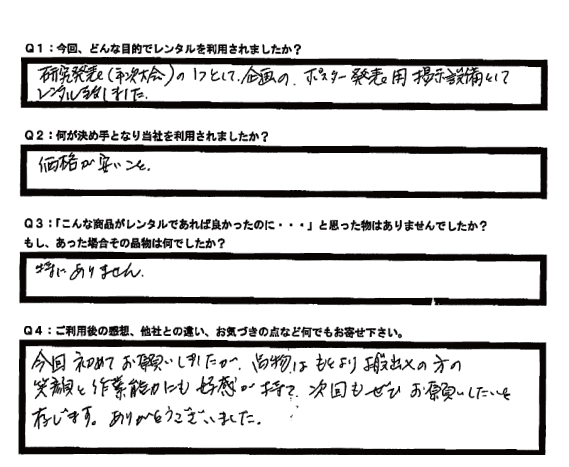 Q1：今回、どんな目的でレンタルを利用されましたか？
研究発表(年次大会)の1つとして、企画の、ポスター発表用 掲示設備として
レンタル致しました。
Q2：何が決め手となり当社を利用されましたか？
価格が安いこと。
Q3：「こんな商品がレンタルであれば良かったのに・・・」と思った物はありませんでしたか？
もし、あった場合その品物は何でしたか？
特にありません。
Q4：ご利用後の感想、他社との違い、お気づきの点など何でもお寄せ下さい。
今回 初めてお願いしましたが、品物はもとより搬出入の方の
笑顔と作業能力にも 好感が持て、次回もぜひ お願いしたいと
存じます。ありがとうございました。